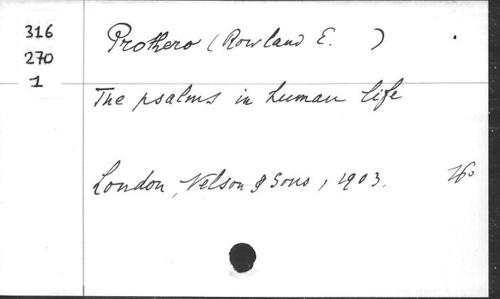 316
270
1
Prothero (Rowland E. )
The psalms in human life
London, Nelson & Sons, 1903. 16°